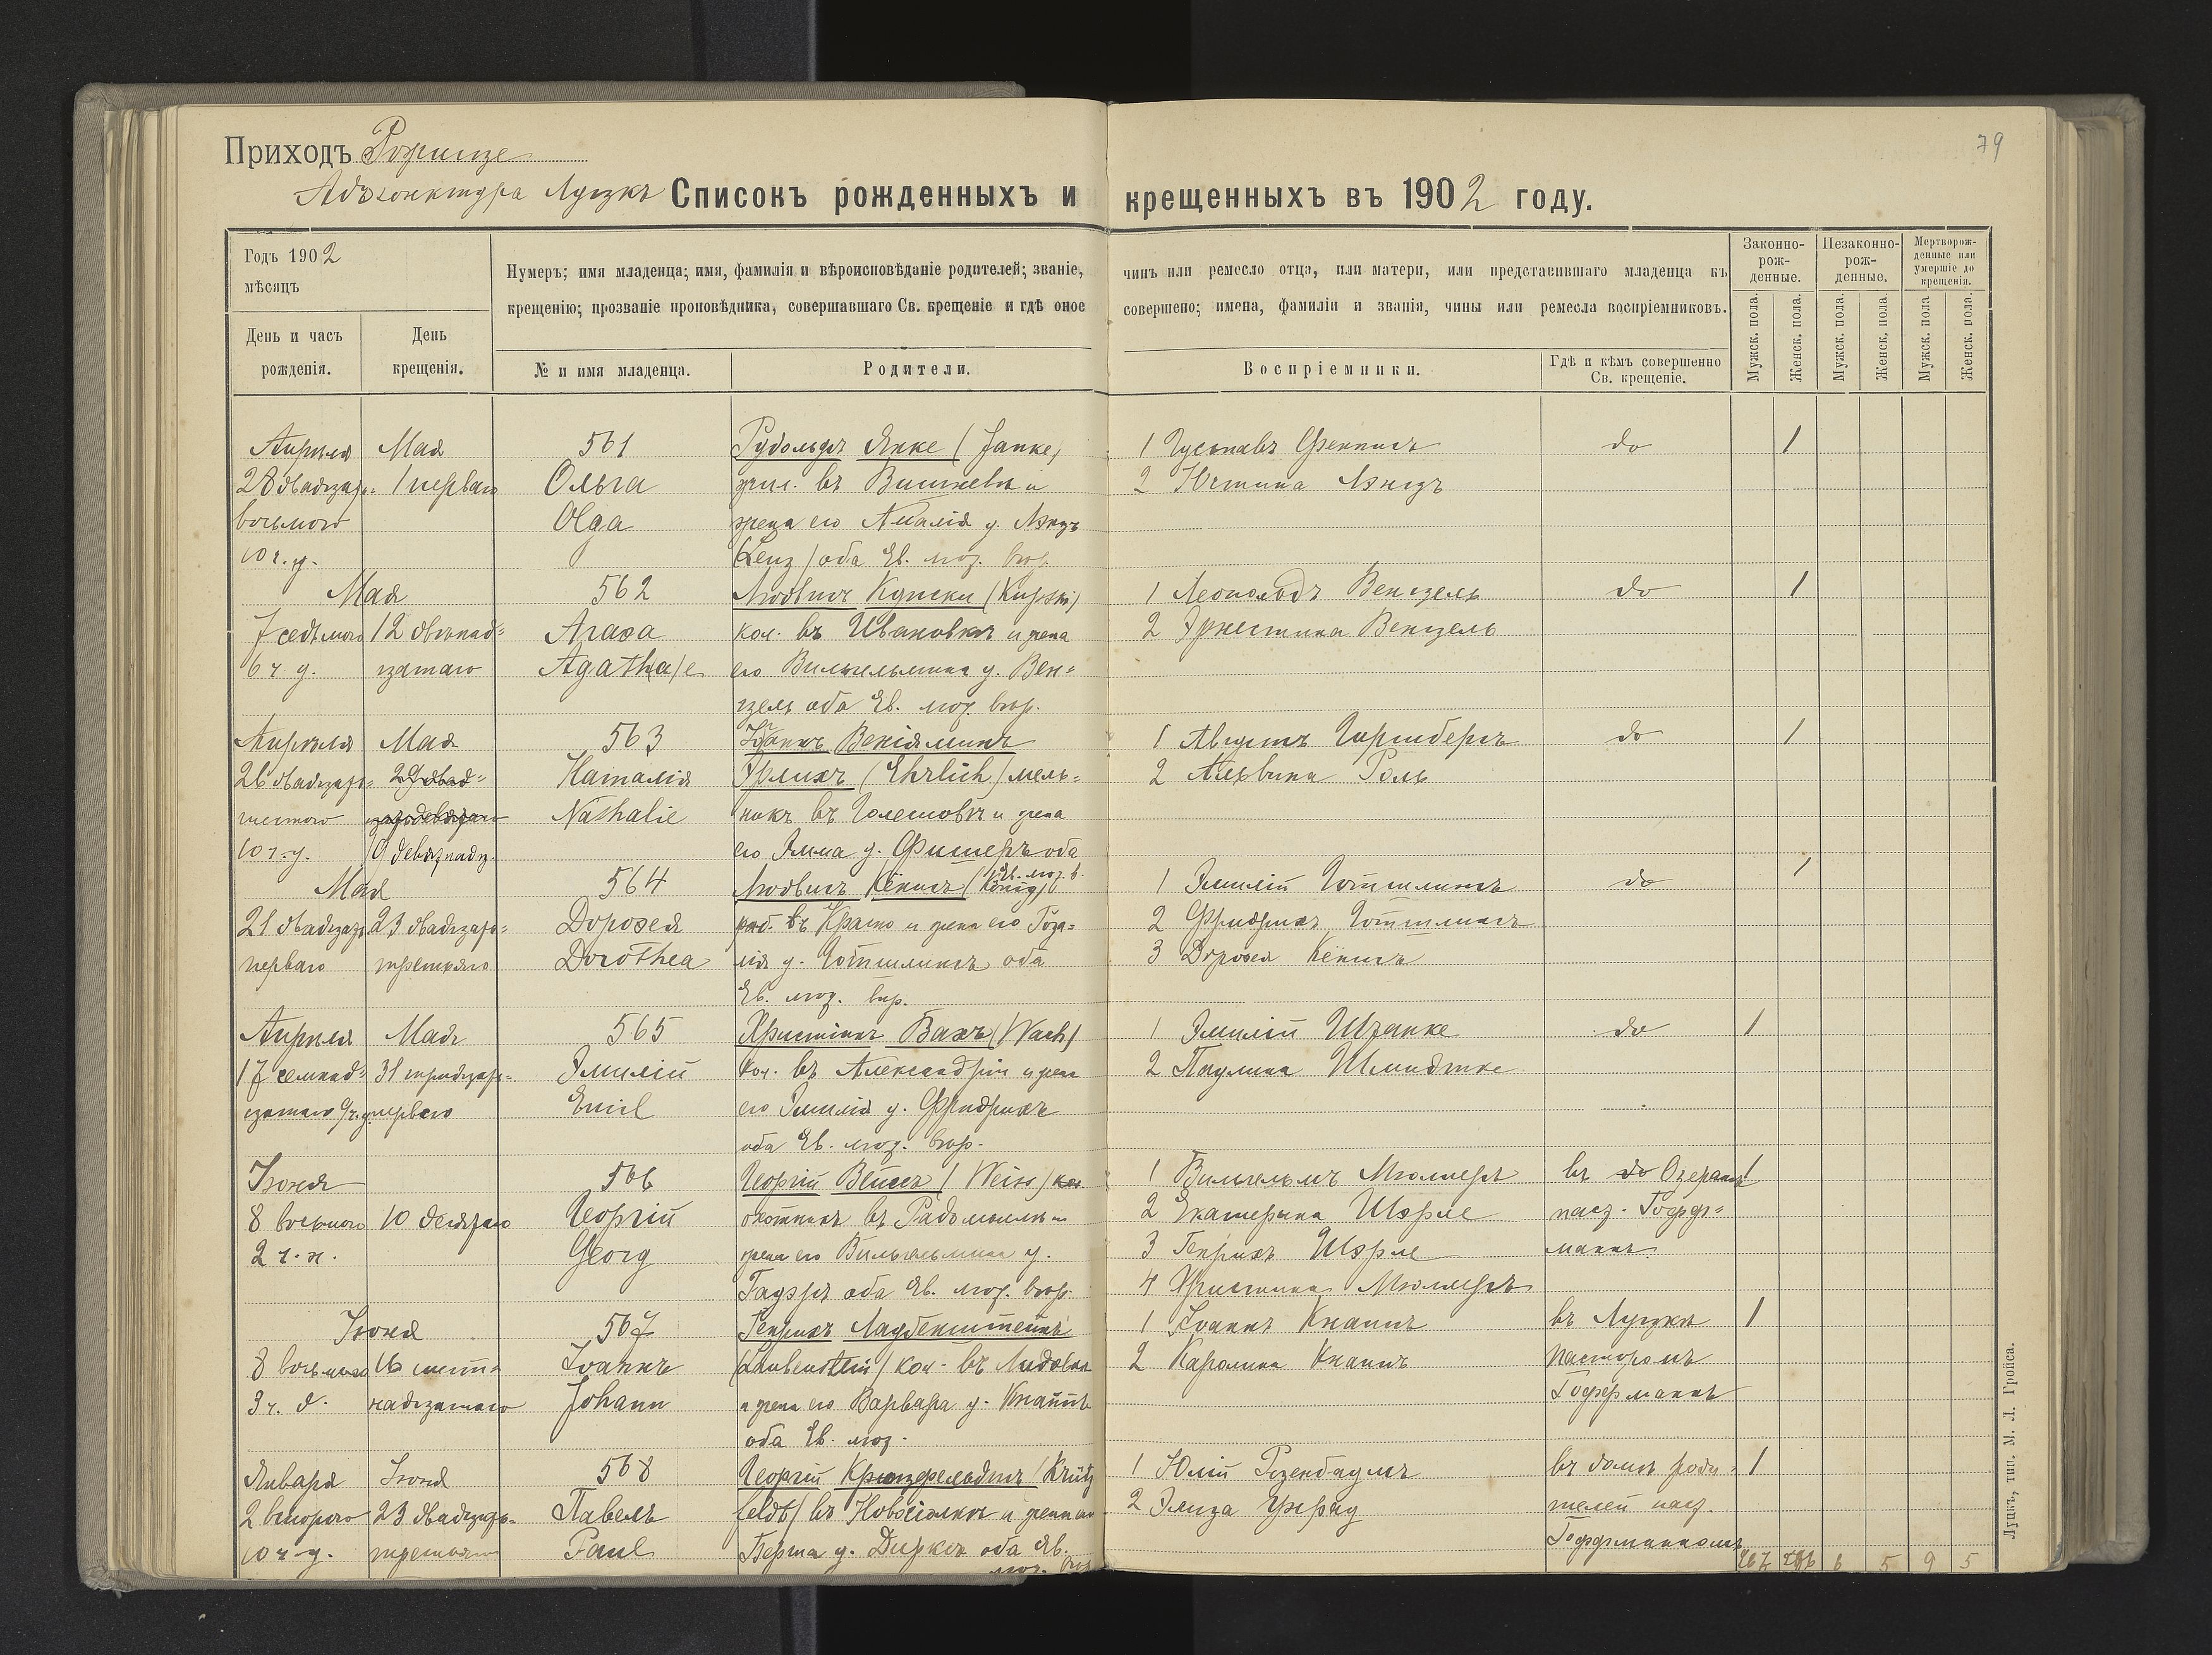 79
Приходъ Рожище
Адъюнктура Луцкъ Списокъ рожденныхъ и крещенныхъ въ 1902 году.
Годъ 1902
мѣсяцъ
День и часъ рожденія.
День крещенія.
Нумеръ; имя младенца; имя, фамилія и вѣроисповѣданіе родителей; званіе, чинъ или ремесло отца, или матери, или представившаго младенца къ
крещенію; прозваніе проповѣдника, совершавшаго Св. крещеніе и гдѣ оное совершено; имена, фамиліи и званія, чины или ремесла воспріемниковъ.
№ и имя младенца.
Родители.
Воспріемники.
Гдѣ и кѣмъ совершенно Св. крещеніе.
Законно-рож-денные.
Незаконно-рож-денные.
Мертворож-денные или умершіе до крещенія.
Мужск. пола. Женск. пола. Мужск. пола. Женск. пола. Мужск. пола Женск. пола.
Апрѣля Мая 561 Рудольфъ Янке (Janke) 1 Густавъ Феннигъ do 1
28 двадцать- 1 перваго Ольга въ Вишневѣ и 2 Юстина Лэнцъ
восьмого Olga жена его Амалія у. Лэнцъ
10 ч. у. (Lenz) оба Ев. лют. вѣр.
Мая 562 Людвигъ Купски (Kupski) 1 Леопольдъ Венцель do 1
7 седьмого 12 двѣнад= Агаѳа кол. въ Ивановкѣ и жена 2 Эрнестина Венцель
6 ч. у. цатаго Agatha/e его Вильгельмина у. Вен=
цель оба Ев. лют. вѣр.
Апрѣля Мая 563 Іоаннъ Веніяминъ 1 Августъ Гиршбергъ do 1
26 двадцать= 29 двад= Наталія Эрлихъ (Ehrlich) мель= 2 Альвина Роль
шестого Nathalie никъ въ и жена
10 ч. у. его Эмма у. Фишеръ оба
Ев. лют. в.
Мая 564 Людвигъ Кёнигъ (König) 1 Эмилій Готшлингъ do 1
21 двадцать 23 двадцать= Дороѳея въ и жена его Роза= 2 Фридрихъ Готшлингъ
перваго третьяго Dorothea лія у. Готшлингъ оба 3 Дороѳея Кёнигъ
Ев. лют. вѣр.
Апрѣля Мая 565 Христіанъ Вахъ (Wach) 1 Эмилій do 1
17 семнад= 31 тридцать- Эмилій кол. въ Александріи и жена 2 Паулина Шмидтке
цатаго перваго Emil его Эмилія у. Фридрихъ
оба Ев. лют. вѣр.
Іюня 566 Георгій Вейсъ (Weiss) 1 Вильгельмъ Мюллеръ въ do Озеранъ 1
8 восьмого 10 десятаго Георгій охотникъ въ и 2 Екатерина Шэрле паст. Гофф=
2 ч. н. Georg жена его Вильгельмина у. 3 Генрихъ Шэрле маннъ
оба Ев. лют. вѣр. 4 Христина Мюллеръ
Іюня 567 Генрихъ Лаубенштейнъ 1 Іоаннъ Кнаппъ въ Луцкѣ 1
8 восьмого 16 шест= Іоаннъ (Laubenstein) кол. въ 2 Каролина Кнаппъ Пасторомъ
3 ч. д. надцатаго Johann и жена его Варвара у. Кнаппъ Гоффманнъ
оба Ев. лют.
Января Іюня 568 Георгій Крюцфельдтъ (Krütz 1 Юлій Розенбаумъ въ домѣ роди= 1
2 второго 23 двадцать- Павелъ feldt) въ и жена его 2 Элиза телей паст.
10 ч. у. третьяго Paul Берта у. оба Ев. Гоффманномъ
лют. вѣр.
6 5 9 5
Луцкъ, тип. М. Л. Гройса.